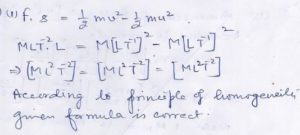 (i) f. s = 1/2 mv² - 1/2 mu²
MLT⁻². L = M[LT⁻¹]² - M[LT⁻¹]²
⇒ [ML²T⁻²] = [ML²T⁻²] = [ML²T⁻²]
According to principle of homogeneity
given formula is correct.